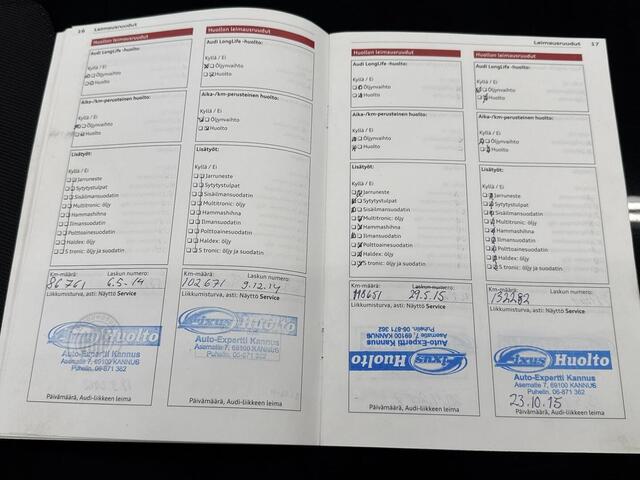 16 Leimausruudut
Huollon leimausruudut
Audi LongLife -huolto:
Kyllä / Ei
Öljynvaihto
Huolto
Aika-/km-perusteinen huolto:
Kyllä / Ei
Öljynvaihto
Huolto
Lisätyöt:
Kyllä / Ei
Jarruneste
Sytytystulpat
Sisäilmansuodatin
Multitronic: öljy
Hammashihna
Ilmansuodatin
Polttoainesuodatin
Haldex: öljy
S tronic: öljy ja suodatin
Km-määrä: Laskun numero:
86761 6.5-14
Liikkumisturva, asti: Näyttö Service
Huolto
Auto-Expertti Kannus
Asematie 7, 69100 KANNUS
Puhelin. 06-871 362
Päivämäärä, Audi-liikkeen leima
Huollon leimausruudut
Audi LongLife -huolto:
Kyllä / Ei
Öljynvaihto
Huolto
Aika-/km-perusteinen huolto:
Kyllä / Ei
Öljynvaihto
Huolto
Lisätyöt:
Kyllä / Ei
Jarruneste
Sytytystulpat
Sisäilmansuodatin
Multitronic: öljy
Hammashihna
Ilmansuodatin
Polttoainesuodatin
Haldex: öljy
S tronic: öljy ja suodatin
Km-määrä: Laskun numero:
102671 9.12.14
Liikkumisturva, asti: Näyttö Service
Fixus Huolto
Auto-Expertti Kannus
Asematie 7, 69100 KANNUS
Puhelin. 06-871 362
Päivämäärä, Audi-liikkeen leima
Leimausruudut 17
Huollon leimausruudut
Audi LongLife -huolto:
Kyllä / Ei
Öljynvaihto
Huolto
Aika-/km-perusteinen huolto:
Kyllä / Ei
Öljynvaihto
Huolto
Lisätyöt:
Kyllä / Ei
Jarruneste
Sytytystulpat
Sisäilmansuodatin
Multitronic: öljy
Hammashihna
Ilmansuodatin
Polttoainesuodatin
Haldex: öljy
S tronic: öljy ja suodatin
Km-määrä: Laskun numero:
118651 29.5.15
Liikkumisturva, asti: Näyttö Service
Fixus Huolto
Auto-Expertti Kannus
Asematie 7, 69100 KANNUS
Puhelin. 06-871 362
Päivämäärä, Audi-liikkeen leima
Huollon leimausruudut
Audi LongLife -huolto:
Kyllä / Ei
Öljynvaihto
Huolto
Aika-/km-perusteinen huolto:
Kyllä / Ei
Öljynvaihto
Huolto
Lisätyöt:
Kyllä / Ei
Jarruneste
Sytytystulpat
Sisäilmansuodatin
Multitronic: öljy
Hammashihna
Ilmansuodatin
Polttoainesuodatin
Haldex: öljy
S tronic: öljy ja suodatin
Km-määrä: Laskun numero:
132282
Liikkumisturva, asti: Näyttö Service
Fixus Huolto
Auto-Expertti Kannus
Asematie 7, 69100 KANNUS
Puhelin. 06-871 362
23.10.15
Päivämäärä, Audi-liikkeen leima